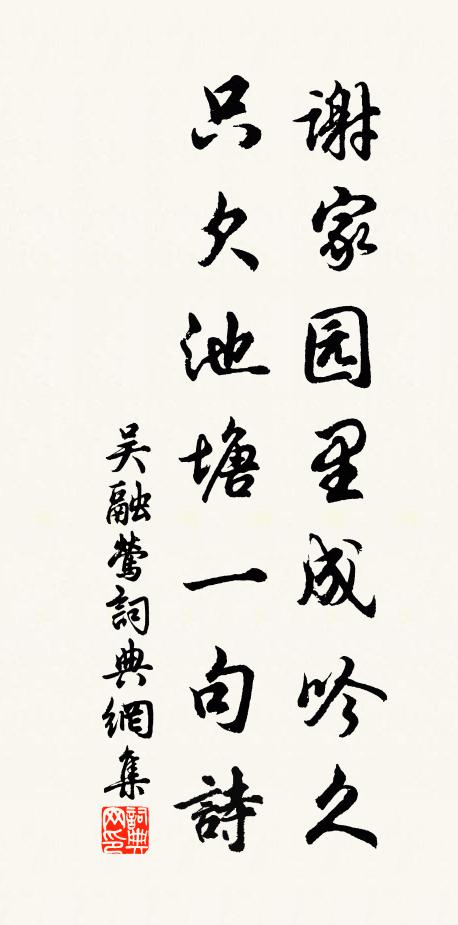 谢家园里成吟久
只欠池塘一句詩
吴融鶯詞典網集
詞典网印